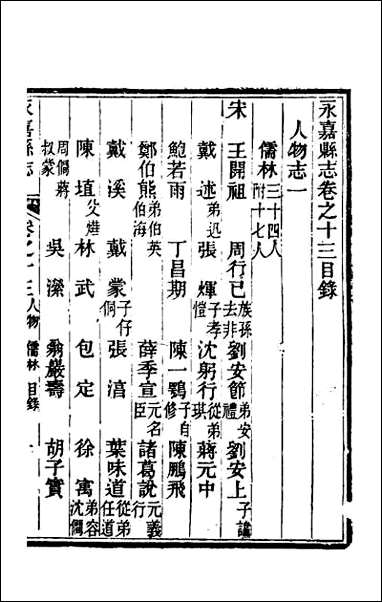 永嘉縣志卷之十三目錄
人物志一
儒林三十四人附十七人
宋 王開祖 周行已族孫去非 劉安節弟安禮 劉安上子誠
戴述弟迅 張煇子孝愷 沈躬行從弟琪 蔣元中
鮑若雨 丁昌期 陳一鶚子自修 陳鵬飛
鄭伯熊弟伯英伯海 薛季宣元名臣 諸葛說元義行
戴溪 戴蒙子仔侗 張淯 葉味道從弟任道
陳埴父煒 林武 包定 徐寓弟容沈僩
周僩蔣叔蒙 吳濚 翁巖壽 胡子實
永嘉縣志 卷之十三人物 儒林 目錄 一